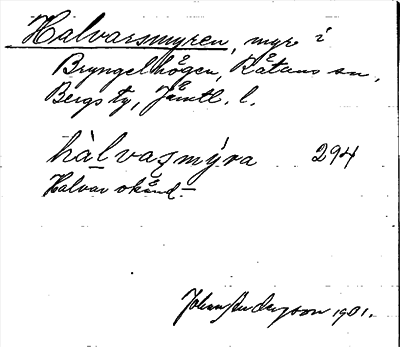 Halvarsmyren, myr i
Bryngelhögen, Rätans sn,
Bergs tg, Jämtl. l.
hàlvaṣmýra 294
Halvar okänd.
Johan Anderson 1901.